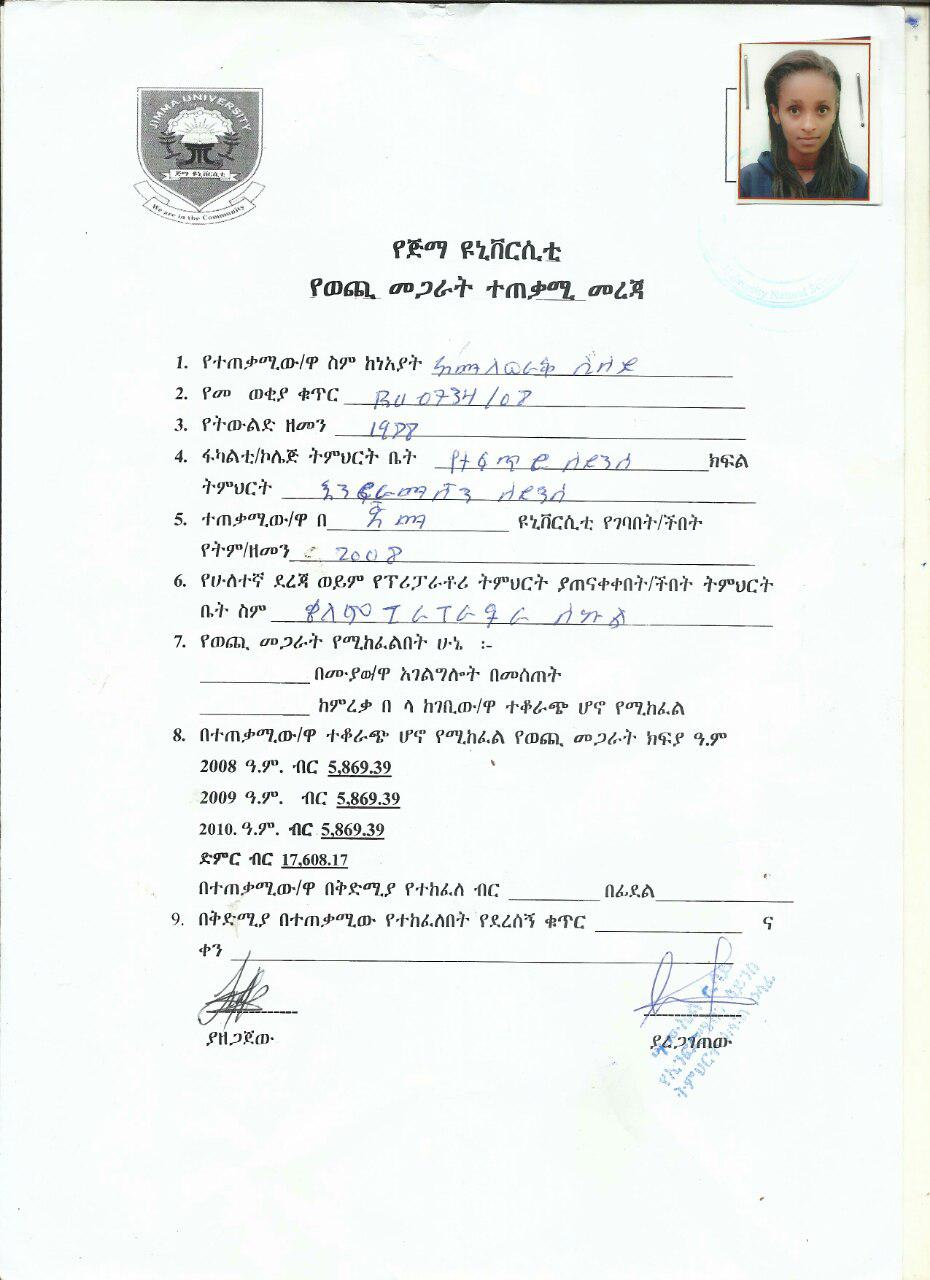 JIMMA UNIVERSITY
ጅማ ዩኒቨርሲቲ
We are in the Community
የጅማ ዩኒቨርሲቲ
የወጪ መጋራት ተጠቃሚ መረጃ
1. የተጠቃሚው/ዋ ስም ከነአያት
2. የመ ወቂያ ቁጥር RU 0734/08
3. የትውልድ ዘመን 1988
4. ፋካልቲ/ኮሌጅ ትምህርት ቤት የተፈጥሮ ሳይንስ ክፍል
ትምህርት ኢንፎርሜሽን ሳይንስ
5. ተጠቃሚው/ዋ በ ጅማ ዩኒቨርሲቲ የገባበት/ችበት
የትም/ዘመን 2008
6. የሁለተኛ ደረጃ ወይም የፕሪፓራቶሪ ትምህርት ያጠናቀቀበት/ችበት ትምህርት
ቤት ስም
7. የወጪ መጋራት የሚከፈልበት ሁኔ :-
በሙያው/ዋ አገልግሎት በመስጠት
ከምረቃ በ ላ ከገቢው/ዋ ተቆራጭ ሆኖ የሚከፈል
8. በተጠቃሚው/ዋ ተቆራጭ ሆኖ የሚከፈል የወጪ መጋራት ክፍያ ዓ.ም
2008 ዓ.ም. ብር 5,869.39
2009 ዓ.ም. ብር 5,869.39
2010. ዓ.ም. ብር 5,869.39
ድምር ብር 17,608.17
በተጠቃሚው/ዋ በቅድሚያ የተከፈለ ብር በፊደል
9. በቅድሚያ በተጠቃሚው የተከፈለበት የደረሰኝ ቁጥር ና
ቀን
ያዘጋጀው ያረጋገጠው